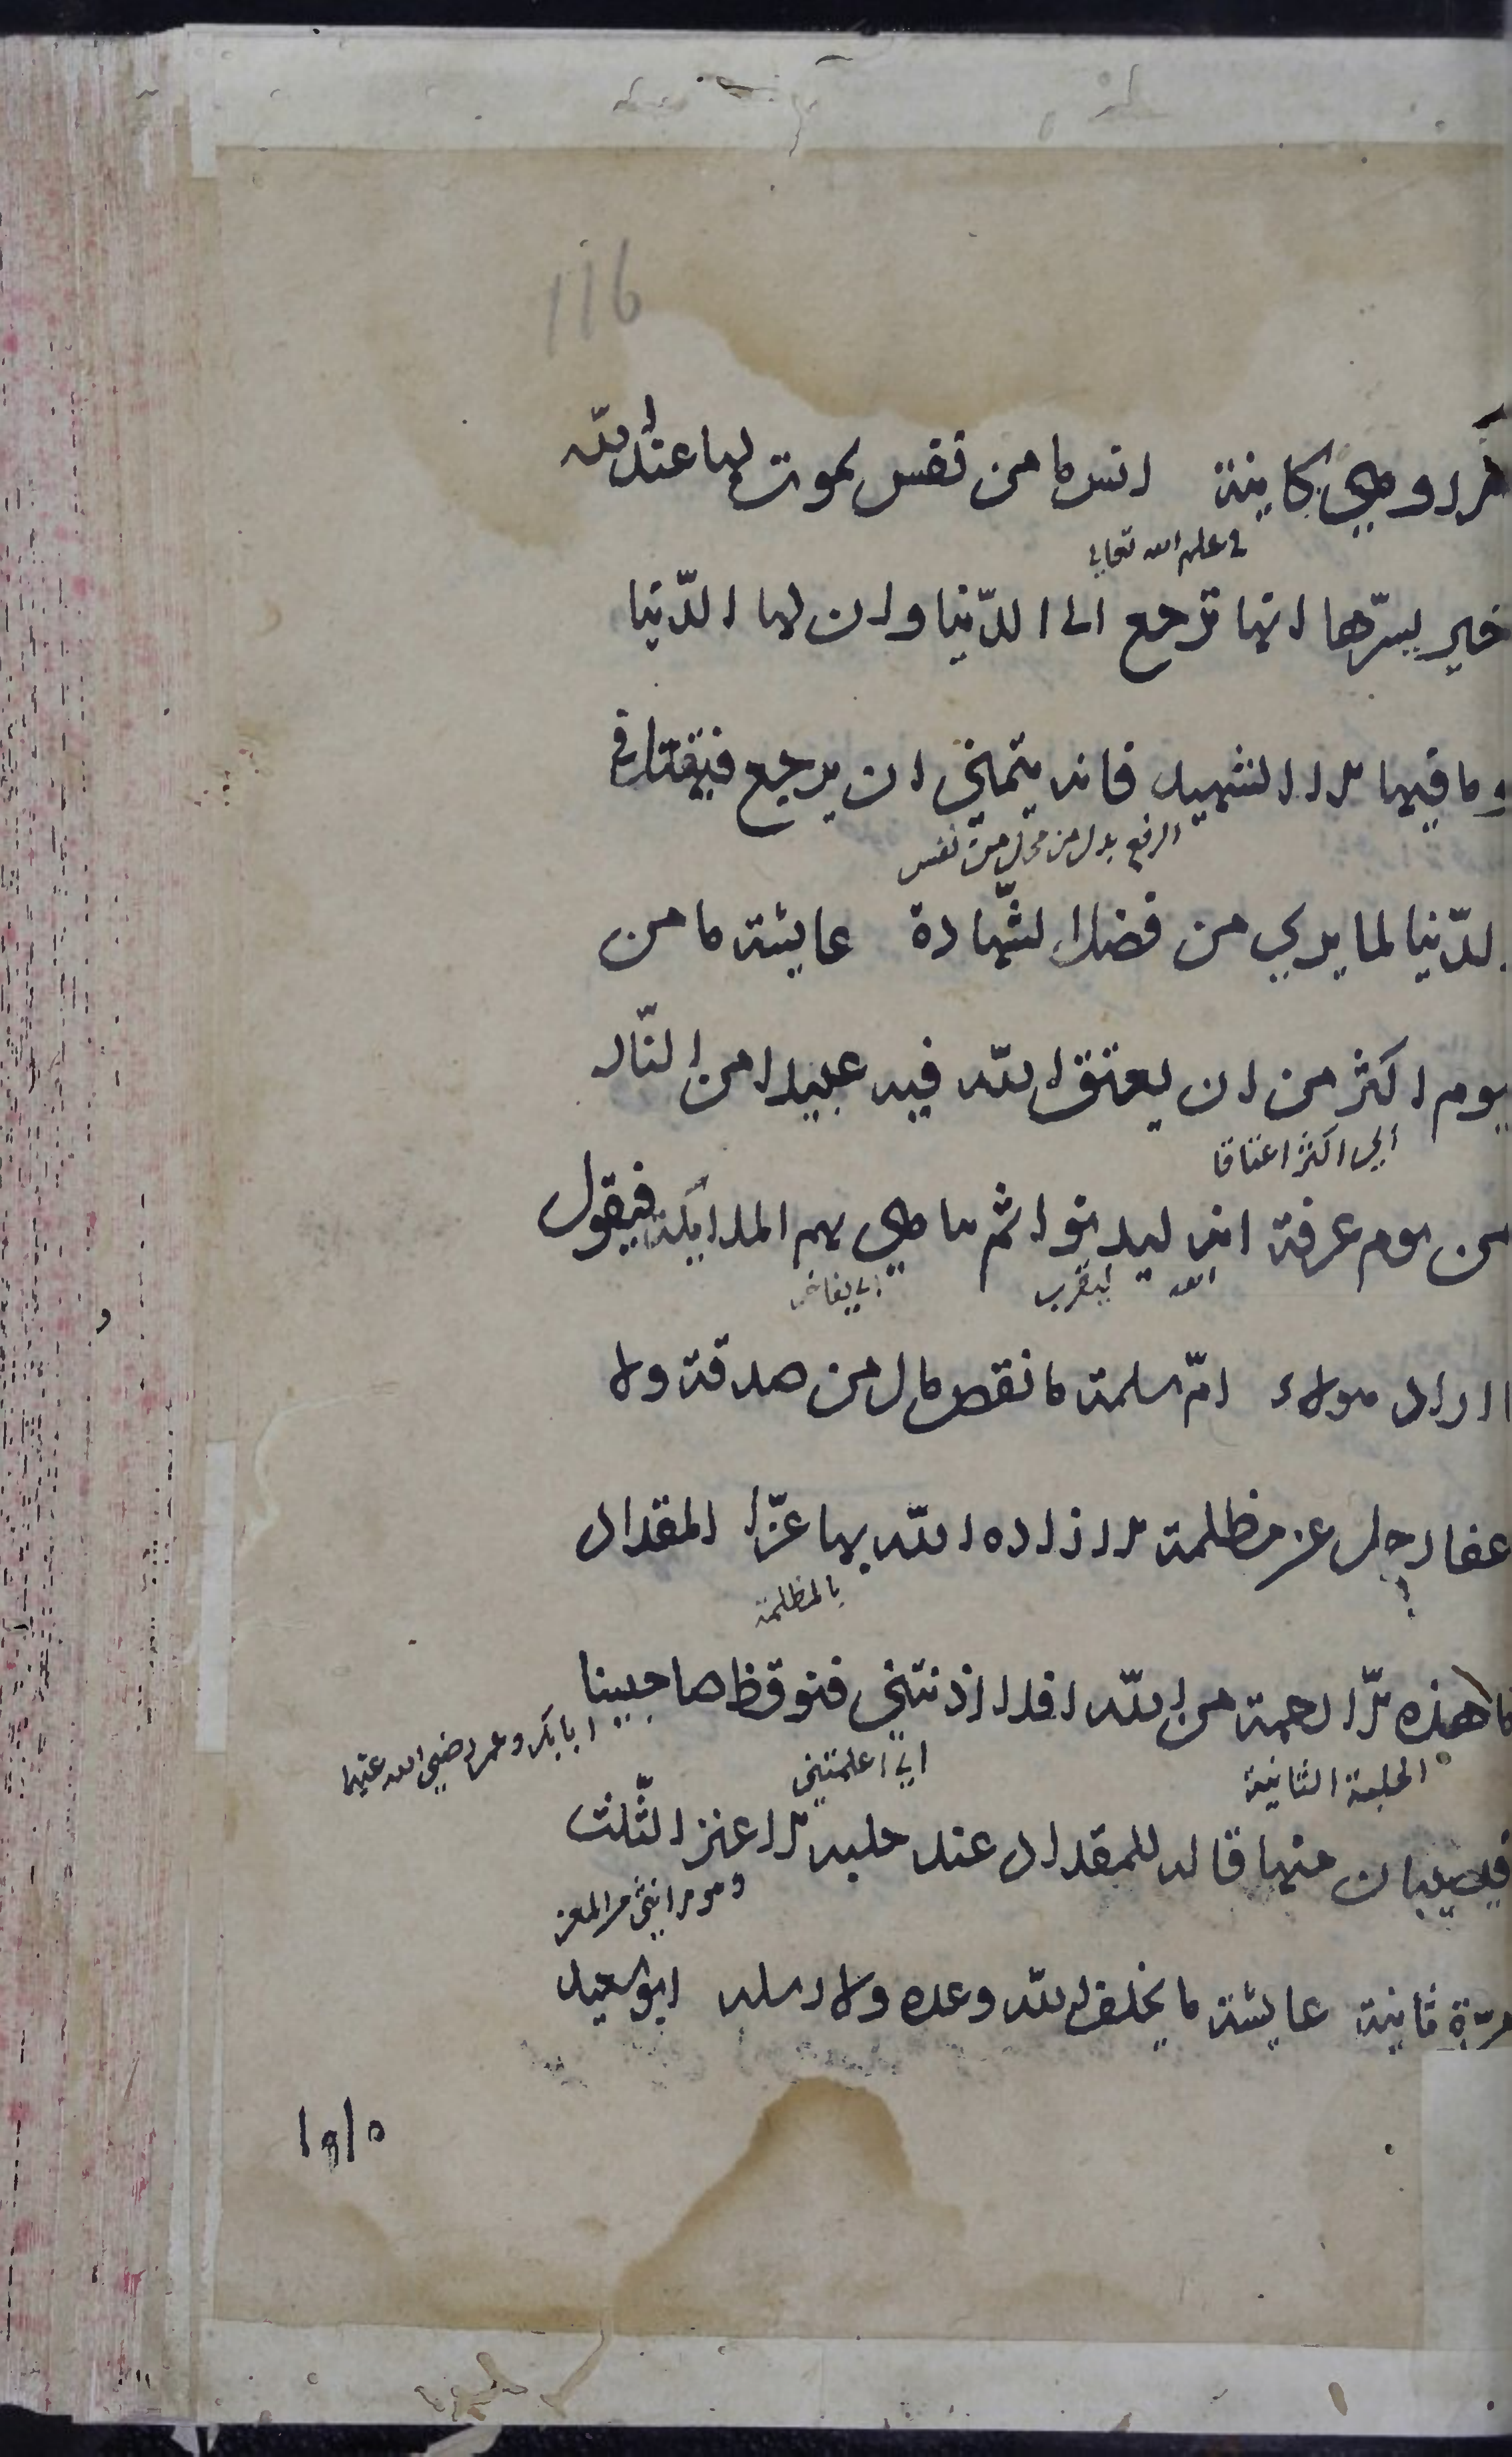 116
الا وهي كاينة انس ما من نفس تموت لها عند الله
في علم الله تعالى
خير يسرّها انها ترجع الى الدّنيا وان لها الدّنيا
وما فيها الا الشهيد فانه يتمنى ان يرجع فيقتل في
الرفع بدل من محل من نفس
الدّنيا لما يري من فضل الشّهادة عايشة ما من
يوم اكثر من ان يعتق الله فيه عبيدا من النّار
اي اكثر اعتاقا
من يوم عرفة انه ليدنوا ثم يباهي بهم الملايكة فيقول
الله ليقرب اي يفاخر
ما اراد هولاء امّ سلمة ما نقص مال من صدقة ولا
عفا رجل عن مظلمة الا زاده الله بها عزّا المقداد
بالمظلمة
ما هذه الّا رحمة من الله افلا اذنتني فنوقظ صاحبينا
الحلبة الثانية اي اعلمتني ابا بكر وعمر رضي الله عنهما
فيصيبان منها قاله للمقداد عند حلبه الاعنز الثّلث
وهو الانثى من المعز
مرّة ثانية عايشة ما يخلف الله وعده ولا رسله ابو سعيد